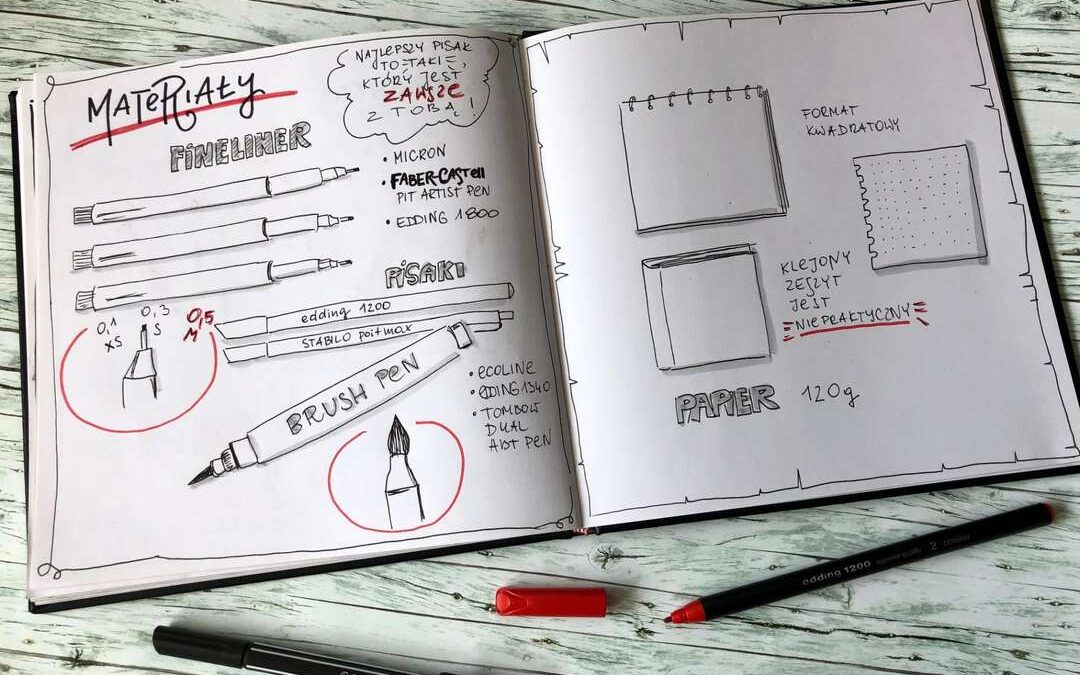 MATERIAŁY
NAJLEPSZY PISAK
TO TAKI,
KTÓRY JEST
ZAWSZE
Z TOBĄ!
FINELINER
• MICRON
• FABER-CASTELL
PIT ARTIST PEN
• EDDING 1800
PISAKI
0,1
XS
0,3
S
0,5
M
edding 1200
STABILO pointmax
BRUSH PEN
• ECOLINE
• EDDING 1340
• TOMBOW
DUAL
ART PEN
FORMAT
KWADRATOWY
KLEJONY
ZESZYT
JEST
NIEPRAKTYCZNY
PAPIER 120g
edding 1200